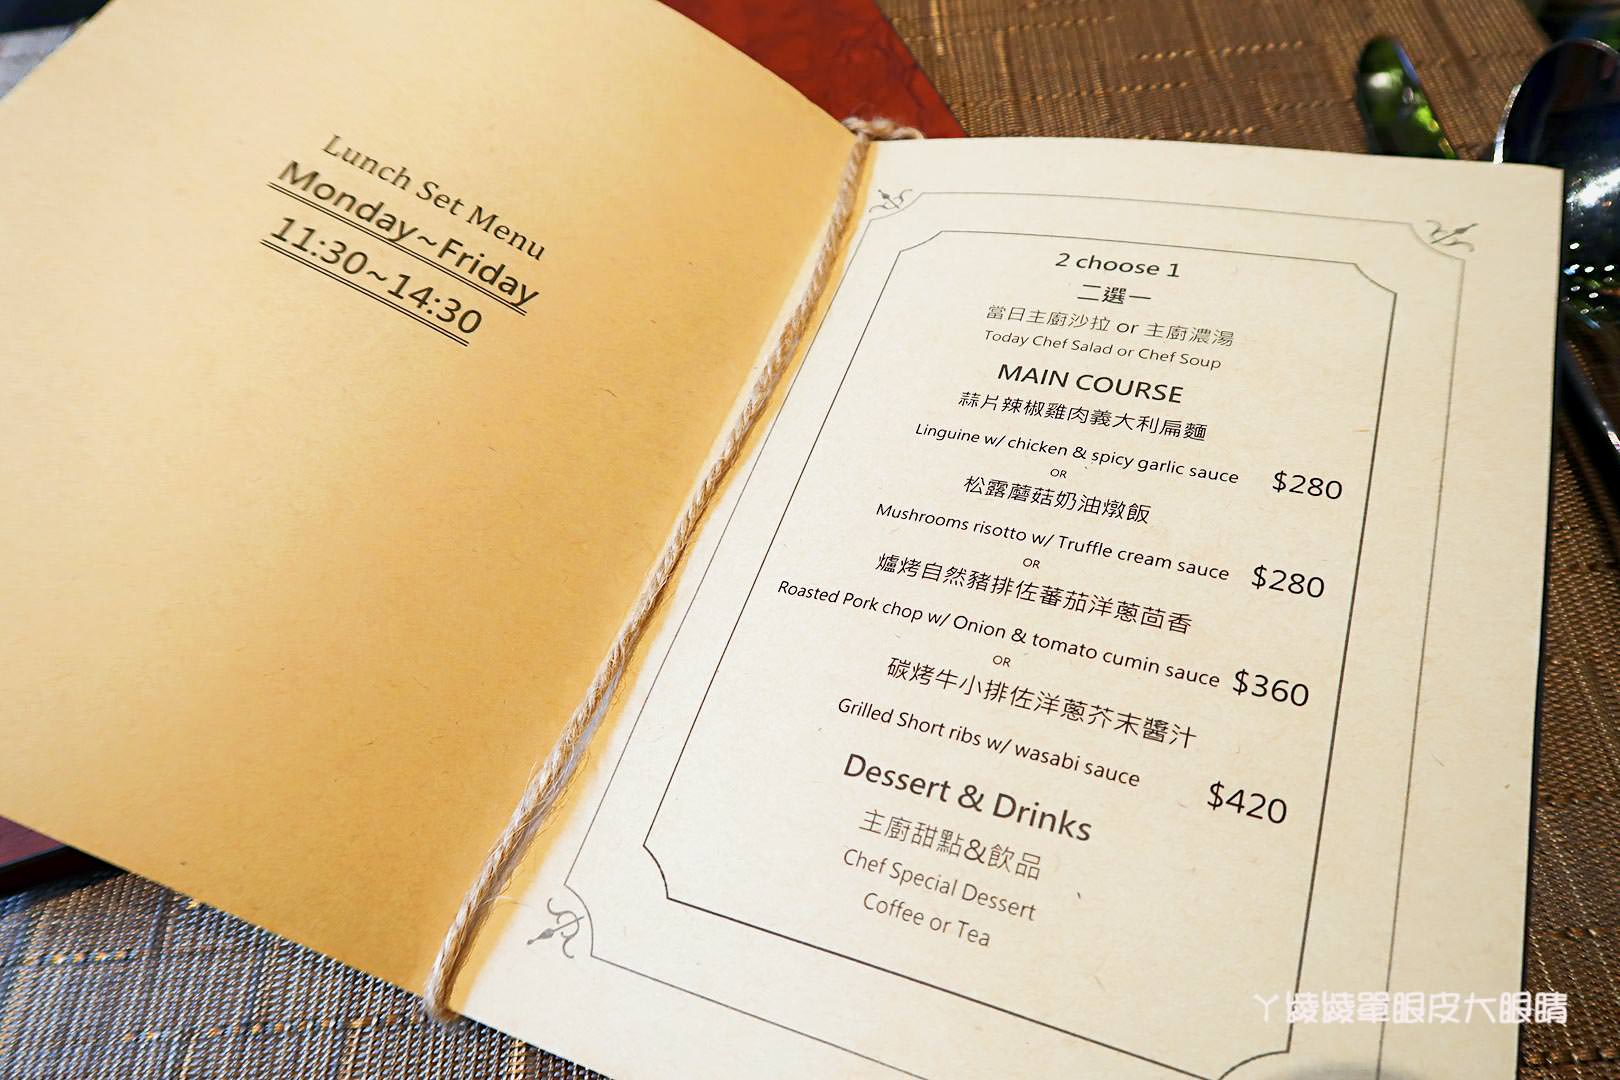 Lunch Set Menu
Monday~Friday
11:30~14:30
2 choose 1
二選一
當日主廚沙拉 or 主廚濃湯
Today Chef Salad or Chef Soup
MAIN COURSE
蒜片辣椒雞肉義大利扁麵
Linguine w/ chicken & spicy garlic sauce $280
OR
松露蘑菇奶油燉飯
Mushrooms risotto w/ Truffle cream sauce $280
OR
爐烤自然豬排佐蕃茄洋蔥茴香
Roasted Pork chop w/ Onion & tomato cumin sauce $360
OR
碳烤牛小排佐洋蔥芥末醬汁
Grilled Short ribs w/ wasabi sauce $420
Dessert & Drinks
主廚甜點&飲品
Chef Special Dessert
Coffee or Tea
ㄚ綾綾單眼皮大眼睛